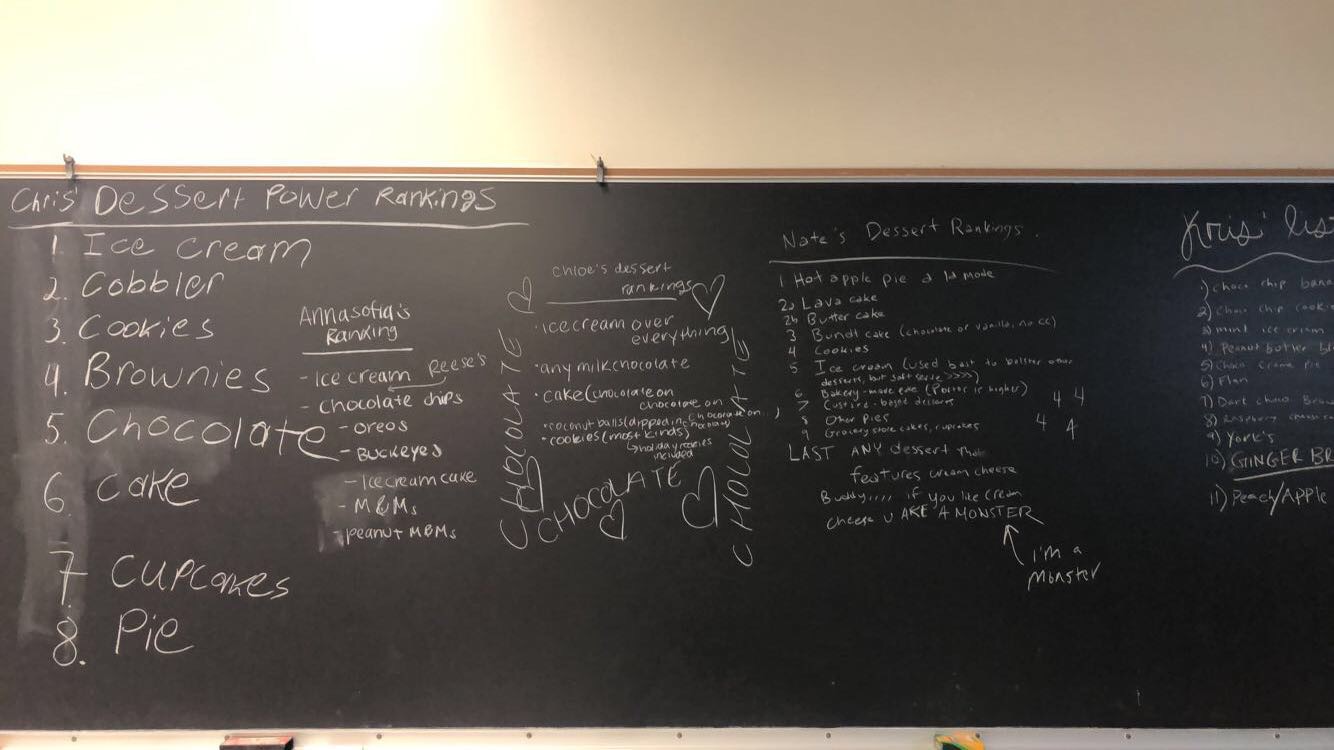 Chris Dessert Power Rankings
1. Ice cream
2. Cobbler
3. Cookies
4. Brownies
5. Chocolate
6. Cake
7 Cupcakes
8. Pie
Annasofia's
Ranking
- Ice cream Reese's
- chocolate chips
- oreos
- Buckeyes
- Icecream cake
- M&Ms
- peanut M&Ms
chloe's dessert
rankings
· icecream over
everything!
· any milk chocolate
· cake (chocolate on
chocolate on
chocolate on...)
· coconut balls (dipped in
chocolate)
· cookies (most kinds)
holiday cookies
included
CHOCOLATE
CHOCOLATE
CHOCOLATE
Nate's Dessert Rankings.
1 Hot apple pie a la mode
2a Lava cake
2b Butter cake
3 Bundt cake (chocolate or vanilla, no cc)
4 Cookies
5 Ice cream (used best to bolster other
desserts, but soft serve >>>>)
6 Bakery-made (Porto's is higher)
7 Custard-based desserts
8 Other pies
9 Grocery store cakes, cupcakes
LAST ANY dessert that
features cream cheese
Buddy,,,, if you like cream
cheese u ARE A MONSTER
I'm a
monster
4 4
4 4
Kris' list
1) choco chip bana
2) choc chip cookie
3) mint ice cream
4) Peanut butter
5) choco creme pie
6) Flan
7) Dark choco
8) Raspberry cheese
9) York's
10) GINGER BR
11) Peach/Apple